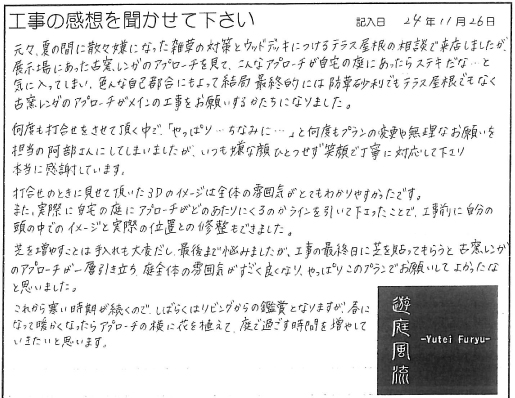 工事の感想を聞かせて下さい
記入日 24年11月26日
元々、夏の間に散々嫌になった雑草の対策とウッドデッキにつけるテラス屋根の相談で来店しましたが、
展示場にあった古窯レンガのアプローチを見て、こんなアプローチが自宅の庭にあったらステキだな…と
気に入ってしまい、色んな自己都合にもよって結局最終的には防草砂利でもテラス屋根でもなく
古窯レンガのアプローチがメインの工事をお願いするかたちになりました。
何度も打合せをさせて頂く中で、「やっぱり…ちなみに…」と何度もプランの変更や無理なお願いを
担当の阿部さんにしてしまいましたが、いつも嫌な顔ひとつせず笑顔で丁寧に対応して下さり
本当に感謝しています。
打合せのときに見せて頂いた3Dのイメージは全体の雰囲気がとてもわかりやすかったです。
また、実際に自宅の庭にアプローチがどのあたりにくるのかラインを引いて下さったことで、工事前に自分の
頭の中でのイメージと実際の位置との修整もできました。
芝を増やすことは手入れも大変だし、最後まで悩みましたが、工事の最終日に芝を貼ってもらうと古窯レンガ
のアプローチが一層引き立ち、庭全体の雰囲気がすごく良くなり、やっぱりこのプランでお願いしてよかったな
と思いました。
これから寒い時期が続くので、しばらくはリビングからの鑑賞となりますが、春に
なって暖かくなったらアプローチの横に花を植えて、庭で過ごす時間を増やして
いきたいと思います。
遊庭風流
-Yutei Furyu-